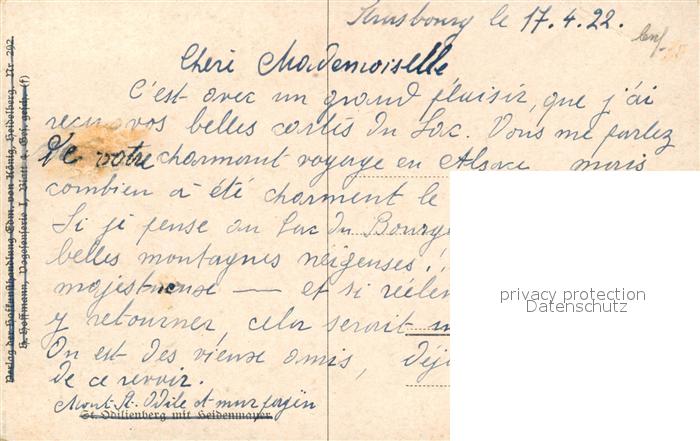 Strasbourg le 17.4.22.
Chéri Mademoiselle
C'est avec un grand plaisir, que j'ai
reçu vos belles cartes du Lac. Vous me parlez
de votre charmant voyage en Alsace, mais
combien a été charment le
Si je pense au Lac du Bourge
belles montagnes neigenses!
majestueuse — et si réélem
y retourner, cela serait
On est des vieux amis, déjà
de ce revoir.
Mont St. Odile et mur payën
St. Odilienberg mit Heidenmauer
Verlag der Hofkunsthandlung Edm. von König, Heidelberg. Nr. 292.
H. Hoffmann, Vogesenserie I, Blatt 4. Ges. gesch. (f)
privacy protection
Datenschutz